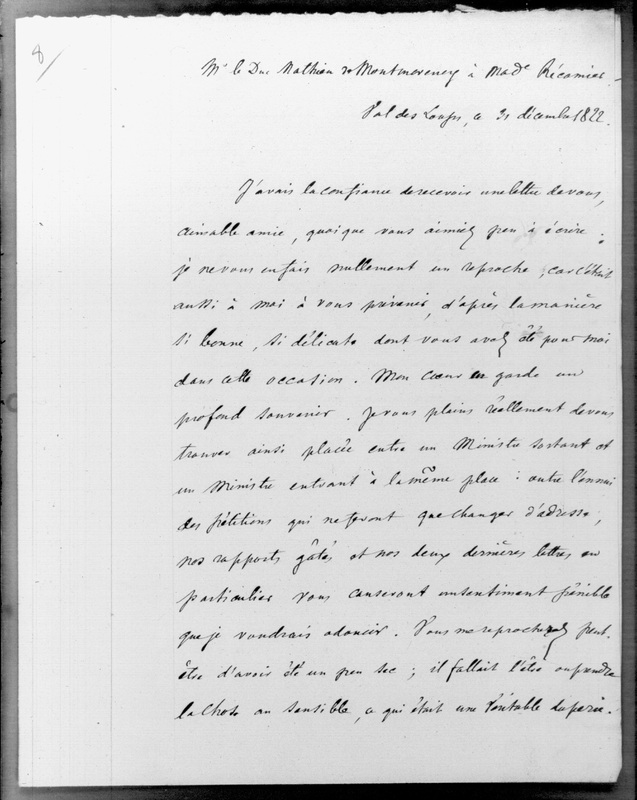 8/
Mr le Duc Mathieu de Montmorency à Made Récamier.
Val des Loups, ce 31 décembre 1822.
J'avais la confiance de recevoir une lettre de vous,
aimable amie, quoique vous aimiez peu à écrire :
je ne vous en fais nullement un reproche, car c'était
aussi à moi à vous prévenir, d'après la manière
si bonne, si délicate dont vous avez été pour moi
dans cette occasion. Mon cœur en garde un
profond souvenir. Je vous plains réellement de vous
trouver ainsi placée entre un Ministre sortant et
un Ministre entrant à la même place : outre l'ennui
des pétitions qui ne feront que changer d'adresse,
nos rapports gâtés et nos deux dernières lettres en
particulier vous causeront un sentiment pénible
que je voudrais adoucir. Vous me reprocherez peut-
être d'avoir été un peu sec ; il fallait l'être ou prendre
la chose au sensible, ce qui était une véritable duperie.